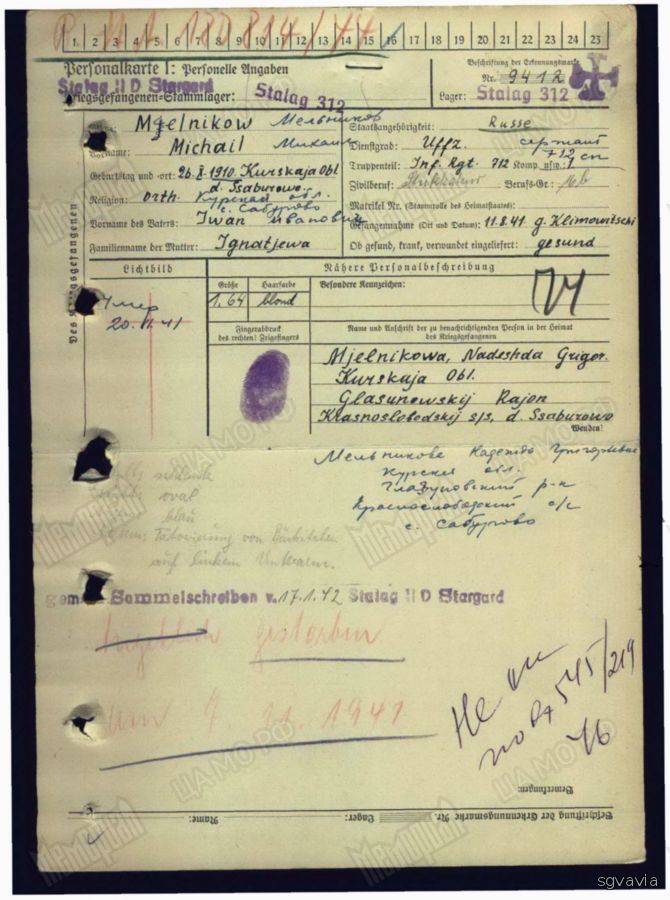 P. U. A. 180814/44
1 2 3 4 5 6 7 8 9 10 11 12 13 14 15 16 17 18 19 20 21 22 23
Personalkarte I: Personelle Angaben
Beschriftung der Erkennungsmarke
Stalag II D Stargard
Nr. 9412
Kriegsgefangenen-Stammlager: Stalag 312
Lager: Stalag 312
Des Kriegsgefangenen
Mjelnikow Мельников
Staatsangehörigkeit: Russe
Vorname: Michail Михаил
Dienstgrad: Uffz. сержант
Truppenteil: Inf. Rgt. 712 Komp. usw.: 712 сп
Geburtstag und -ort: 26. X. 1910. Kurskaja Obl
d. Ssaburowo
Zivilberuf: Berufs-Gr.:
Religion: Orth. Курская обл.
с. Сабурово
Matrikel Nr. (Stammrolle des Heimatstaates):
Vorname des Vaters: Iwan Иванович
Gefangennahme (Ort und Datum): 11.8.41 g. Klimowitschi
Familienname der Mutter: Ignatjewa
Ob gesund, krank, verwundet eingeliefert: gesund
Lichtbild
Nähere Personalbeschreibung
Größe Haarfarbe Besondere Kennzeichen:
1.64 blond
Умер
41
Fingerabdruck
des rechten! Zeigefingers
Name und Anschrift der zu benachrichtigenden Person in der Heimat
des Kriegsgefangenen
Mjelnikowa, Nadeshda Grigor.
Kurskaja Obl.
Glasunowskij Rajon
Krasnoslobodskij s/s, d. Ssaburowo
Wenden!
Мельникова Надежда Григорьевна
Курская обл.
Глазуновский р-н
Краснослободский с/с
с. Сабурово
oval
blau
Tätowierung von
auf linkem Unterarm.
Sammelschreiben v. 17.1.42 Stalag II D Stargard
Angeblich gestorben
1941
Не
545/219
Bemerkungen:
Beschriftung der Erkennungsmarke Nr. Lager: Name:
МЕМОРИАЛ
ЦАМО РФ
sgvavia